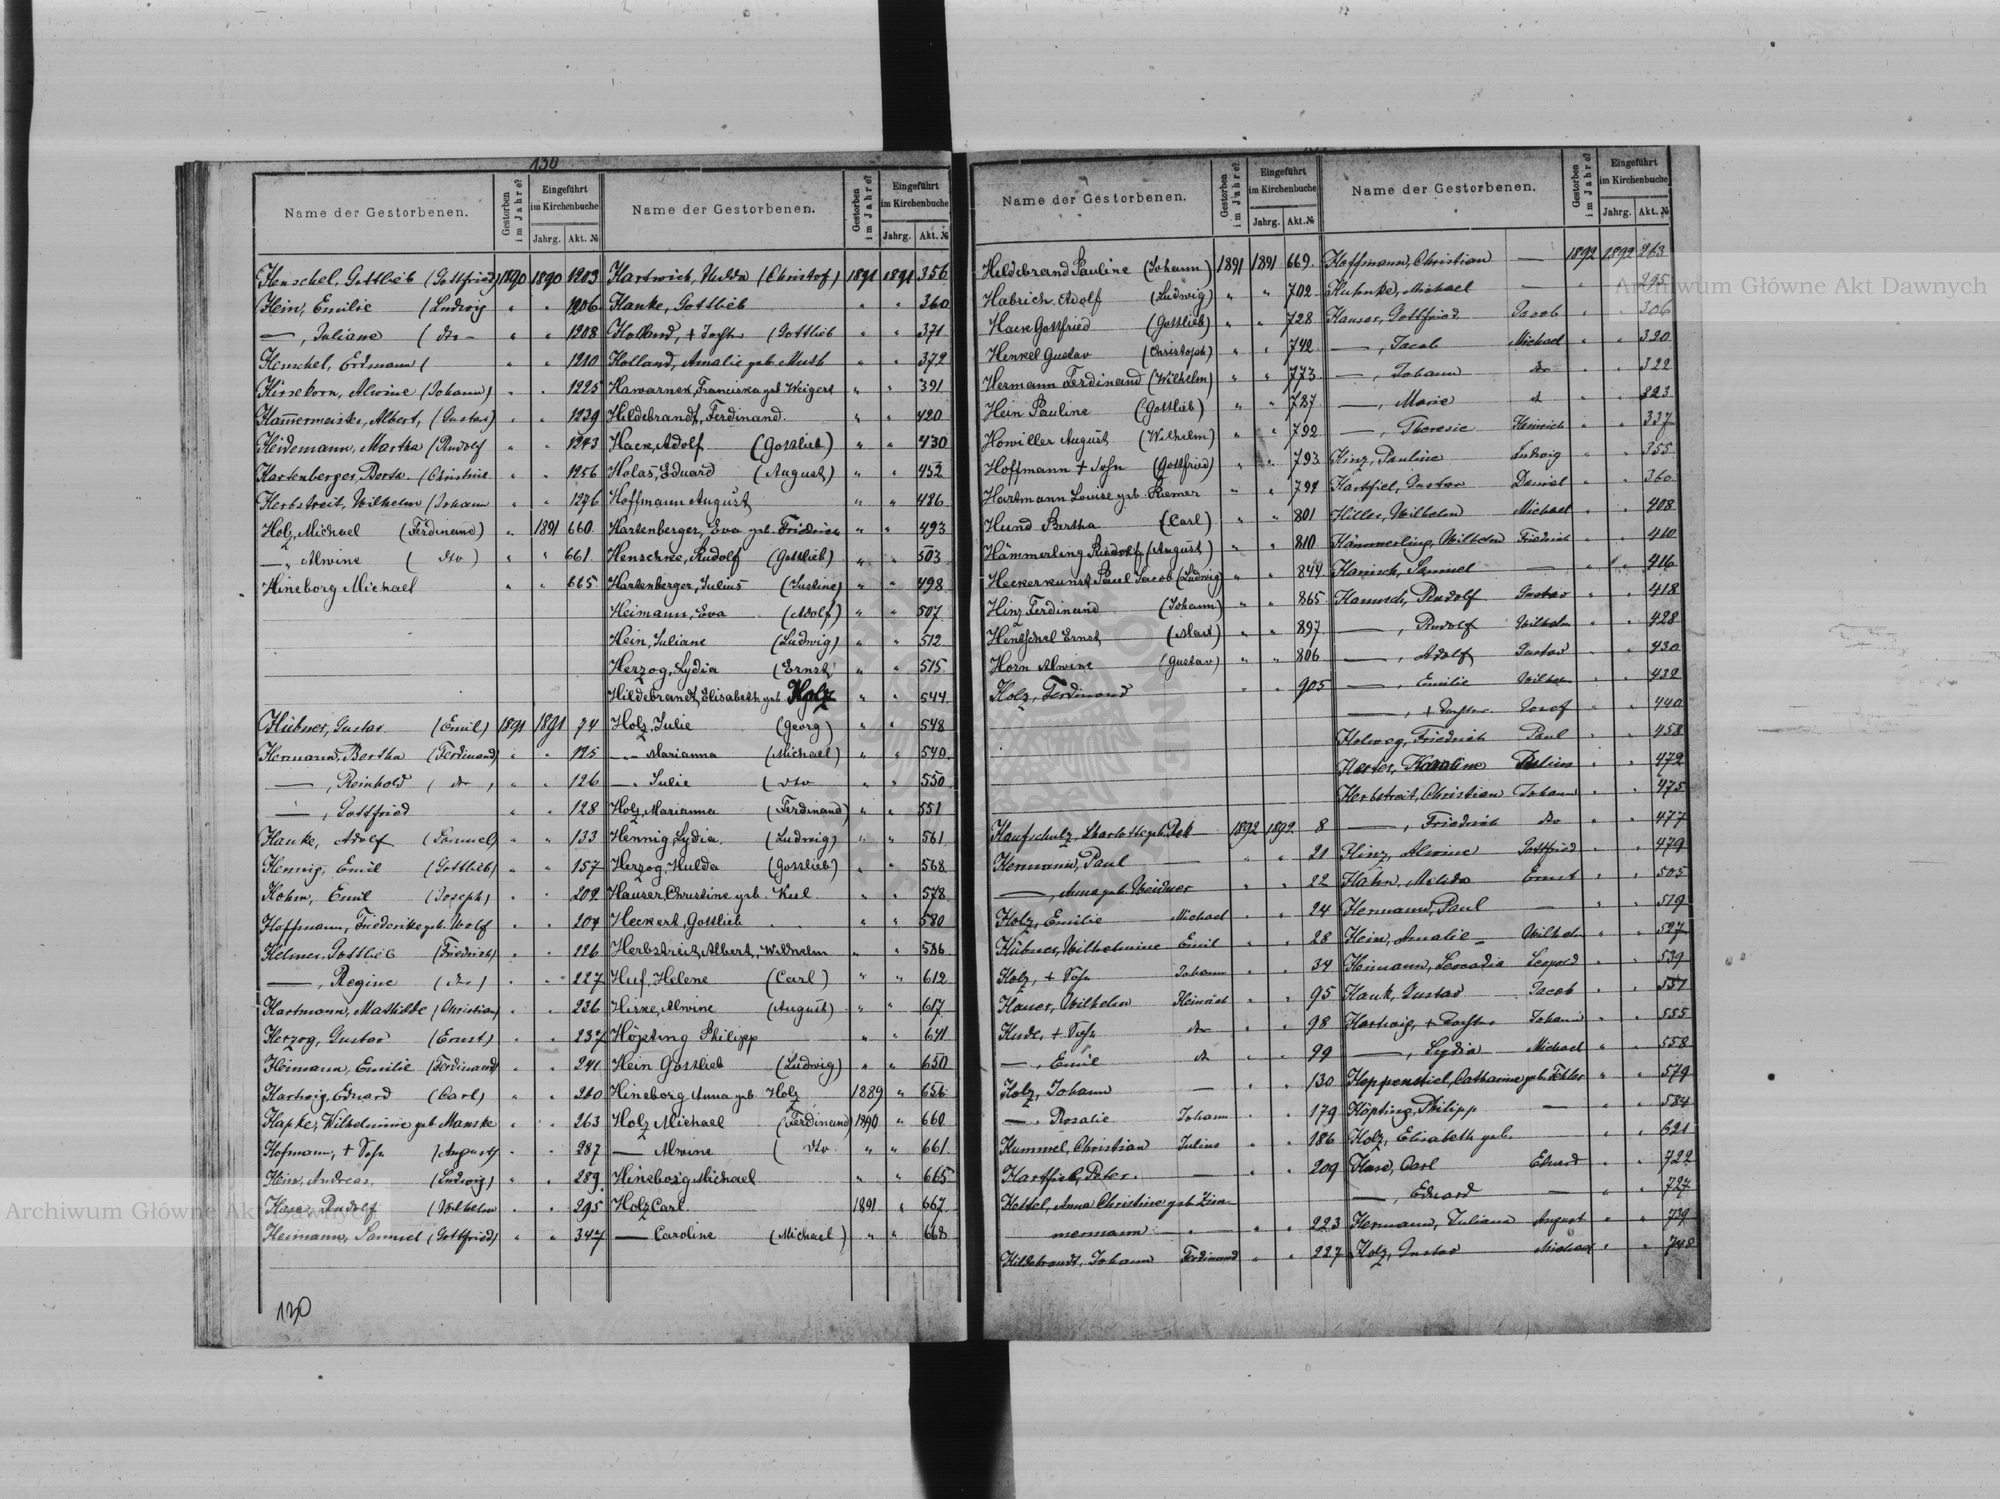 130
Name der Gestorbenen. Gestorben im Jahre? Eingeführt im Kirchenbuche Jahrg. Akt. №
Henschel, Gottlieb (Gottfried) 1890 1890 1203
Hein, Emilie (Ludwig „ „ 1206
— , Juliane ( dto - „ „ 1208
Henschel, Erdmann ( „ „ 1210
Hirsekorn, Alwine (Johann) „ „ 1225
Hammermeister, Albert, (Gustav) „ „ 1239
Heidemann, Martha (Rudolf „ „ 1243
Hartenberger, Berta (Christine „ „ 1256
Herbstreit, Wilhelm (Johann „ „ 1276
Holz, Michael (Ferdinand) „ 1891 660.
— „ Alwine ( dto ) „ „ 661.
Hineborg Michael „ „ 665
Hübner, Gustav (Emil) 1891 1891 74
Hermann, Bertha (Ferdinand) „ „ 125
— , Reinhold ( dto ) „ „ 126
— , Gottfried „ „ 128
Hanke, Adolf (Samuel) „ „ 133
Hennig, Emil (Gottlieb) „ „ 157
Hohm, Emil (Joseph) „ „ 202
Hoffmann, Friederike geb. Wolf „ „ 204
Helmer, Gottlieb (Friedrich) „ „ 226
— , Regine ( dto ) „ „ 227
Hartmann, Mathilde (Christian) „ „ 236
Herzog, Gustav (Ernst) „ „ 237
Heimann, Emilie (Ferdinand) „ „ 241
Hartwig, Eduard (Carl) „ „ 260
Hapke, Wilhelmine geb. Manske „ „ 263
Hofmann, + Sohn (August) „ „ 287
Hein, Andreas, (Ludwig) „ „ 289
Hase, Rudolf (Wilhelm „ „ 295
Heimann, Samuel (Gottfried) „ „ 347
130
Name der Gestorbenen. Gestorben im Jahre? Eingeführt im Kirchenbuche Jahrg. Akt. №
Hartwich, Hulda (Christof) 1891 1891 356
Hanke, Gottlieb „ „ 360
Holland, + Tochter (Gottlieb „ „ 371
Holland, Amalie geb. Muth „ „ 372
Hawarnek, Franciska geb Weigert „ „ 391
Hildebrandt, Ferdinand. „ „ 420
Hack, Adolf (Gottlieb) „ „ 430
Holas, Eduard (August) „ „ 452
Hoffmann August „ „ 486
Hartenberger, Eva geb. Friedrich „ „ 493
Henschke, Rudolf (Gottlieb) „ „ 503
Hartenberger, Julius (Justine) „ „ 498
Heimann, Eva (Adolf) „ „ 507
Hein, Juliane (Ludwig) „ „ 512
Herzog, Lydia (Ernst) „ „ 515
Hildebrandt, Elisabeth geb. Holz „ „ 544
Holz, Julie (Georg) „ „ 548
— „ Marianna (Michael) „ „ 549
— „ Julie ( dto „ „ 550
Holz, Marianna (Ferdinand) „ „ 551
Hennig, Lydia (Ludwig) „ „ 561
Herzog, Hulda (Gottlieb) „ „ 568
Hauser, Christine geb. Kul „ „ 578
Heckert, Gottlieb „ „ 580
Herbstreit, Albert, Wilhelm „ „ 586
Huf, Helene (Carl) „ „ 612
Hirke, Alwine (August) „ „ 617
Höpting Philipp „ „ 641
Hein Gottlieb (Ludwig) „ „ 650
Hineborg Anna geb. Holz 1889 „ 656
Holz Michael (Ferdinand) 1890 „ 660
— Alwine ( dto. „ „ 661
Hineborg Michael „ „ 665
Holz Carl. 1891 „ 667
— Caroline (Michael) „ „ 668
Name der Gestorbenen. Gestorben im Jahre? Eingeführt im Kirchenbuche Jahrg. Akt. №
Hildebrand Pauline (Johann) 1891 1891 669.
Habrich Adolf (Ludwig) „ „ 702
Hack Gottfried (Gottlieb) „ „ 728
Henkel Gustav (Christoph) „ „ 742
Hermann Ferdinand (Wilhelm) „ „ 773
Hein Pauline (Gottlieb) „ „ 787
Howiller August (Wilhelm) „ „ 792
Hoffmann + Sohn (Gottfried) „ „ 793
Hartmann Louise geb. Riemer „ „ 799
Hund Bertha (Carl) „ „ 801
Hämmerling Rudolf (August) „ „ 810
Heckerkunst Paul Jacob (Ludwig) „ „ 844
Hinz Ferdinand (Johann) „ „ 865
Hentschel Ernst „ „ 897
Horn Alwine (Gustav) „ „ 806
Holz, Ferdinand „ „ 905
Haufschulz, Charlotte geb. 1892 1892 8
Hermann, Paul — „ „ 21
— , Anna geb. Weidner „ „ 22
Holz, Emilie Michael „ „ 24
Hübner, Wilhelmine Emil „ „ 28
Holz, + Sohn Johann „ „ 34
Hauer, Wilhelm Heinrich „ „ 95
Hude, + Sohn dto „ „ 98
— , Emil dto „ „ 99
Holz, Johann — „ „ 130
— , Rosalie Johann „ „ 179
Hummel, Christian Julius „ „ 186
Hartfiel, Peter. — „ „ 209
Hettel, Anna Christine geb. Zim-
mermann — „ „ 223
Hildebrandt, Johann Ferdinand „ „ 227
Name der Gestorbenen. Gestorben im Jahre? Eingeführt im Kirchenbuche Jahrg. Akt. №
Hoffmann, Christian — 1892 1892 263
Huhnke, Michael — „ „ 295
Hauser, Gottfried Jacob „ „ 306
— , Jacob Michael „ „ 320
— , Johann dto „ „ 322
— , Marie dto „ „ 323
— , Theresie Heinrich „ „ 337
Hinz, Pauline Ludwig „ „ 355
Hartfiel, Gustav Daniel „ „ 360
Hiller, Wilhelm Michael „ „ 408
Hämmerling, Wilhelm Friedrich „ „ 410
Hanisch, Samuel — „ „ 416
Hanusch, Rudolf Gustav „ „ 418
— , Rudolf Wilhelm „ „ 428
— , Adolf Gustav „ „ 430
— , Emilie Wilhelm „ „ 432
— , + Tochter Josef „ „ 440
Holweg, Friedrich Paul „ „ 458
Herter, Karoline Julius „ „ 472
Herbstreit, Christian Johann „ „ 475
— , Friedrich dto „ „ 477
Hinz, Alwine Gottfried „ „ 479
Hahn, Melida Ernst „ „ 505
Hermann, Paul — „ „ 519
Hein, Amalie Wilhelm „ „ 527
Heimann, Leocadia Leopold „ „ 539
Hauk, Gustav Jacob „ „ 551
Hartwig, + Tochter Johann „ „ 555
— , Lydia Michael „ „ 558
Heppenstiel, Catharine geb. Fehler „ „ 579
Höpting, Philipp — „ „ 584
Holz, Elisabeth geb. „ „ 621
Hase, Carl Eduard „ „ 722
— , Eduard — „ „ 727
Hermann, Juliana August „ „ 739
Holz, Gustav Michael „ „ 748
Archiwum Główne Akt Dawnych
Archiwum Główne Akt Dawnych